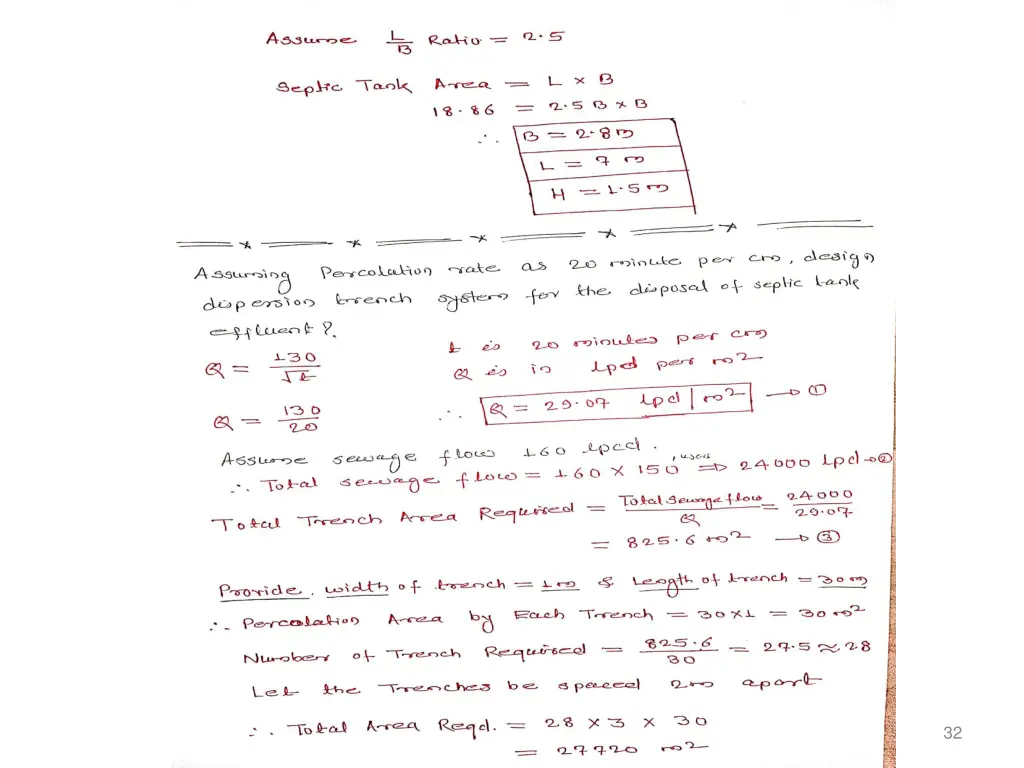 Assume L/B Ratio = 2.5
Septic Tank Area = L × B
18.86 = 2.5 B × B
∴ B = 2.8 m
L = 7 m
H = 1.5 m
Assuming Percolation rate as 20 minute per cm, design
dispersion trench system for the disposal of septic tank
effluent?
Q = 130/√t
t is 20 minutes per cm
Q is in lpd per m2
Q = 130/20
∴ Q = 29.07 lpd/m2 → ①
Assume sewage flow 160 lpcd.
∴ Total sewage flow = 160 × 150 users ⇒ 24000 lpd → ②
Total Trench Area Required = Total sewage flow/Q = 24000/29.07
= 825.6 m2 → ③
Provide, width of trench = 1m & Length of trench = 30m
∴ Percolation Area by Each Trench = 30×1 = 30 m2
Number of Trench Required = 825.6/30 = 27.5 ≈ 28
Let the Trenches be spaced 2m apart
∴ Total Area Reqd. = 28 × 3 × 30
= 27720 m2
32